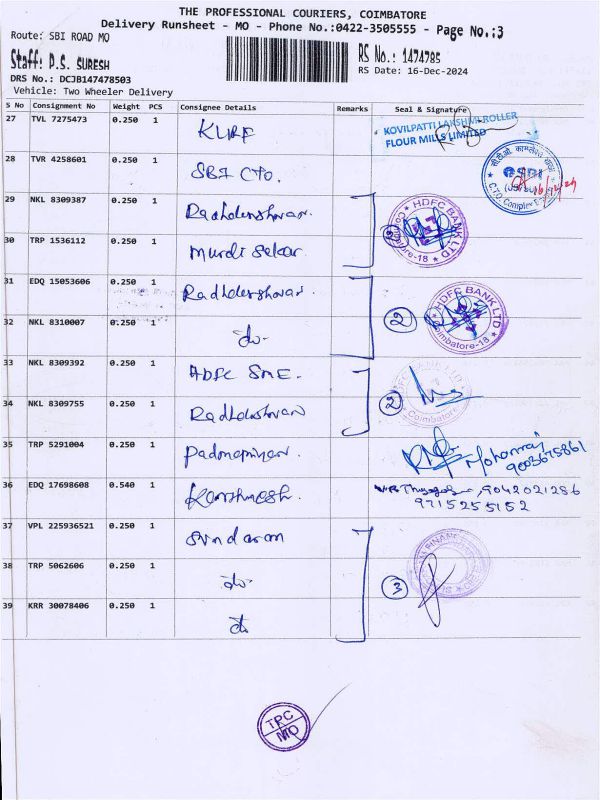 THE PROFESSIONAL COURIERS, COIMBATORE
Delivery Runsheet - MO - Phone No.:0422-3505555 - Page No.:3
Route: SBI ROAD MO
Staff: P.S. SURESH
RS No.: 1474785
DRS No.: DCJB147478503
RS Date: 16-Dec-2024
Vehicle: Two Wheeler Delivery
S No Consignment No Weight PCS Consignee Details Remarks Seal & Signature
27 TVL 7275473 0.250 1 KLRF KOVILPATTI LAKSHMI ROLLER
FLOUR MILLS LIMITED
28 TVR 4258601 0.250 1 SBI CTO. SBI
C.T.O. Complex
29 NKL 8309387 0.250 1 HDFC BANK LTD
Coimbatore-18
30 TRP 1536112 0.250 1
31 EDQ 15053606 0.250 1 HDFC BANK LTD
Coimbatore-18
32 NKL 8310007 0.250 1 do. 2
33 NKL 8309392 0.250 1 HDFC SME.
34 NKL 8309755 0.250 1 2 Coimbatore
35 TRP 5291004 0.250 1 Mohanraj
9003675861
36 EDQ 17698608 0.540 1 9042021286
9715255152
37 VPL 225936521 0.250 1 Sundaram
38 TRP 5062606 0.250 1 do. 3
39 KRR 30078406 0.250 1 do
TPC
MO